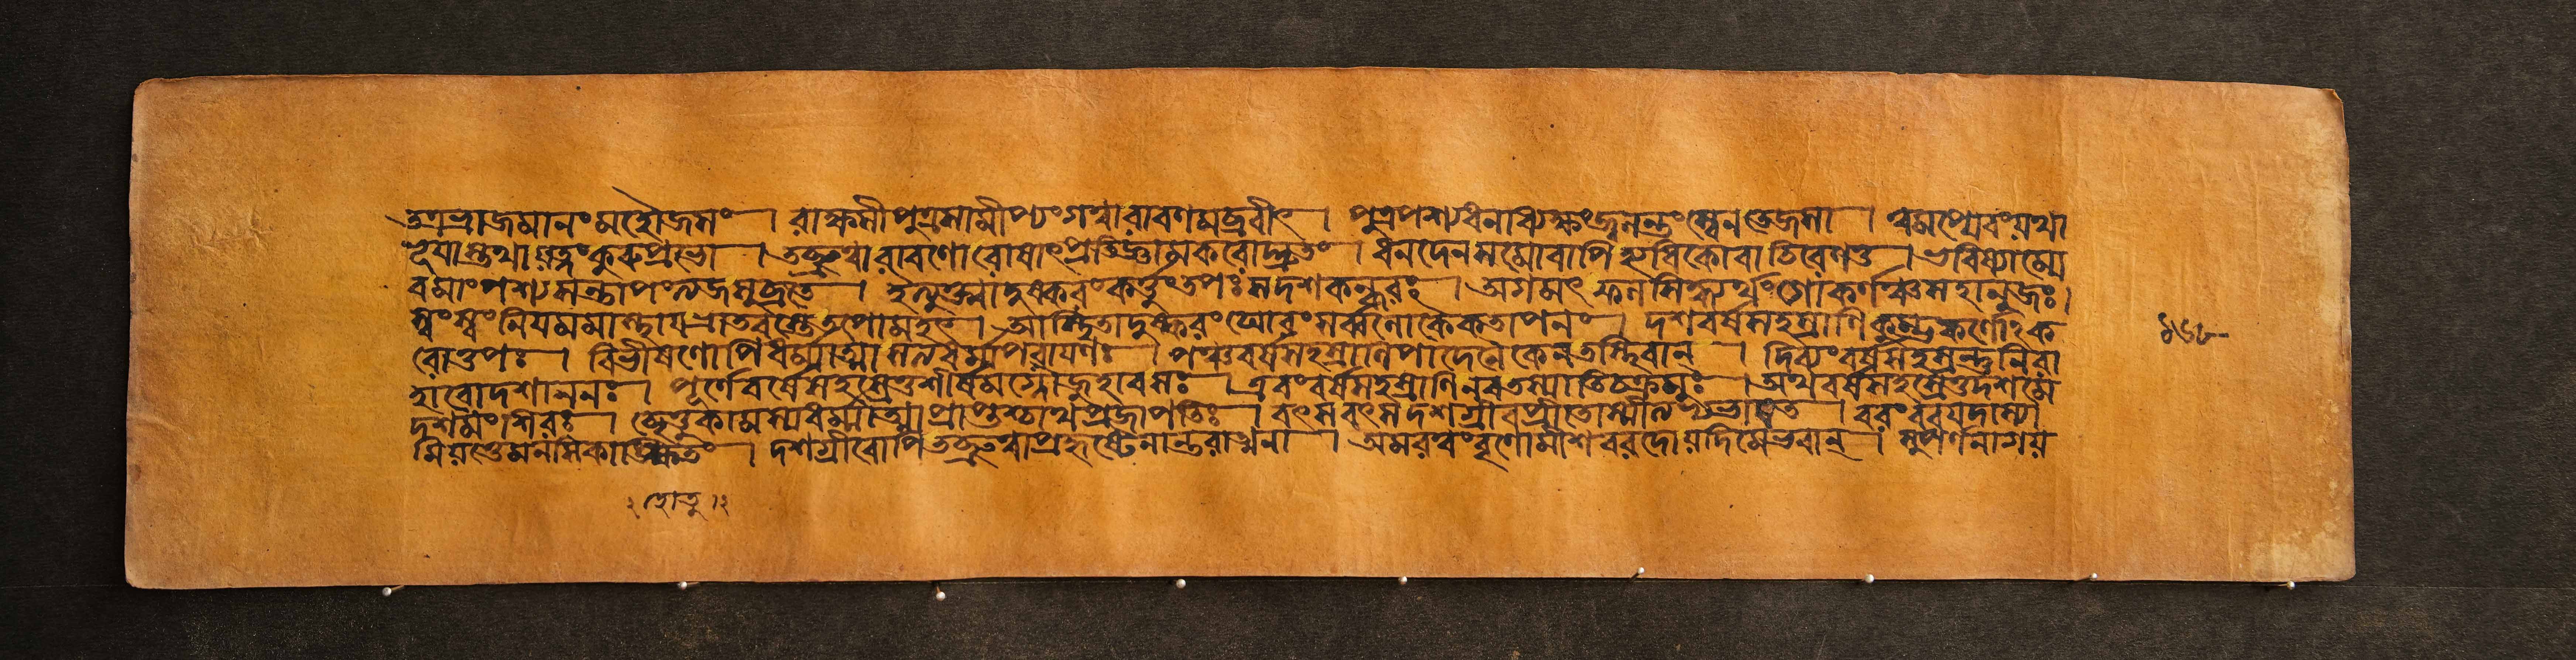 তত্রভ্রাজমানং মহৌজসং । রাক্ষসীপুত্রসামীপ্যংগত্বারাবণমব্রবীৎ । পুত্রপশ্যধনাধ্যক্ষংজ্বলন্তংস্বেনতেজসা । ত্বমপ্যেবংয়থা
ভূয়াস্তথায়ত্নংকুরুপ্রভো । তচ্ছ্রুত্বারাবণোরোষাৎপ্রতিজ্ঞামকরোদ্দ্রুতং । ধনদেনসমোবাপিহ্যধিকোবাচিরেণতু । ভবিষ্যাম্যে
বমাংপশ্যসন্তাপংত্যজসুব্রতে । ইত্যুক্ত্বাদুষ্করংকর্ত্তুংতপঃসদশকন্ধরঃ । অগমৎফলসিদ্ধ্যর্থংগোকর্ণঞ্চসহানুজঃ ।
স্বংস্বংনিয়মমাস্থায়ভ্রাতরস্তেতপোমহৎ । আস্থিতাদুষ্করংঘোরংসর্ব্বলোকৈকতাপনং । দশবর্ষসহস্রাণিকুম্ভকর্ণোঽক
রোত্তপঃ । বিভীষণোপিধর্ম্মাত্মাসত্যধর্ম্মপরায়ণঃ । পঞ্চবর্ষসহস্রাণিপাদেনৈকেনতস্থিবান্ । দিব্যংবর্ষসহস্রন্তুনিরা
হারোদশাননঃ । পূর্ণেবর্ষসহস্রেতুশীর্ষমগ্নৌজুহাবসঃ । এবংবর্ষসহস্রাণিনবতস্যাতিচক্রমুঃ । অথবর্ষসহস্রেতুদশমে
দশমংশিরঃ । চ্ছেত্তুকামস্যধর্ম্মাত্মাপ্রাপ্তশ্চাথপ্রজাপতিঃ । বৎসবৎসদশগ্রীবপ্রীতোস্মীত্যভ্যভাষত । বরংবরয়দাস্যা
মিয়ত্তেমনসিকাঙ্ক্ষিতং । দশগ্রীবোপিতচ্ছ্রুত্বাপ্রহৃষ্টেনান্তরাত্মনা । অমরত্বংবৃণোমীশবরদোয়দিমেভবান্ । সুপর্ণনাগয়